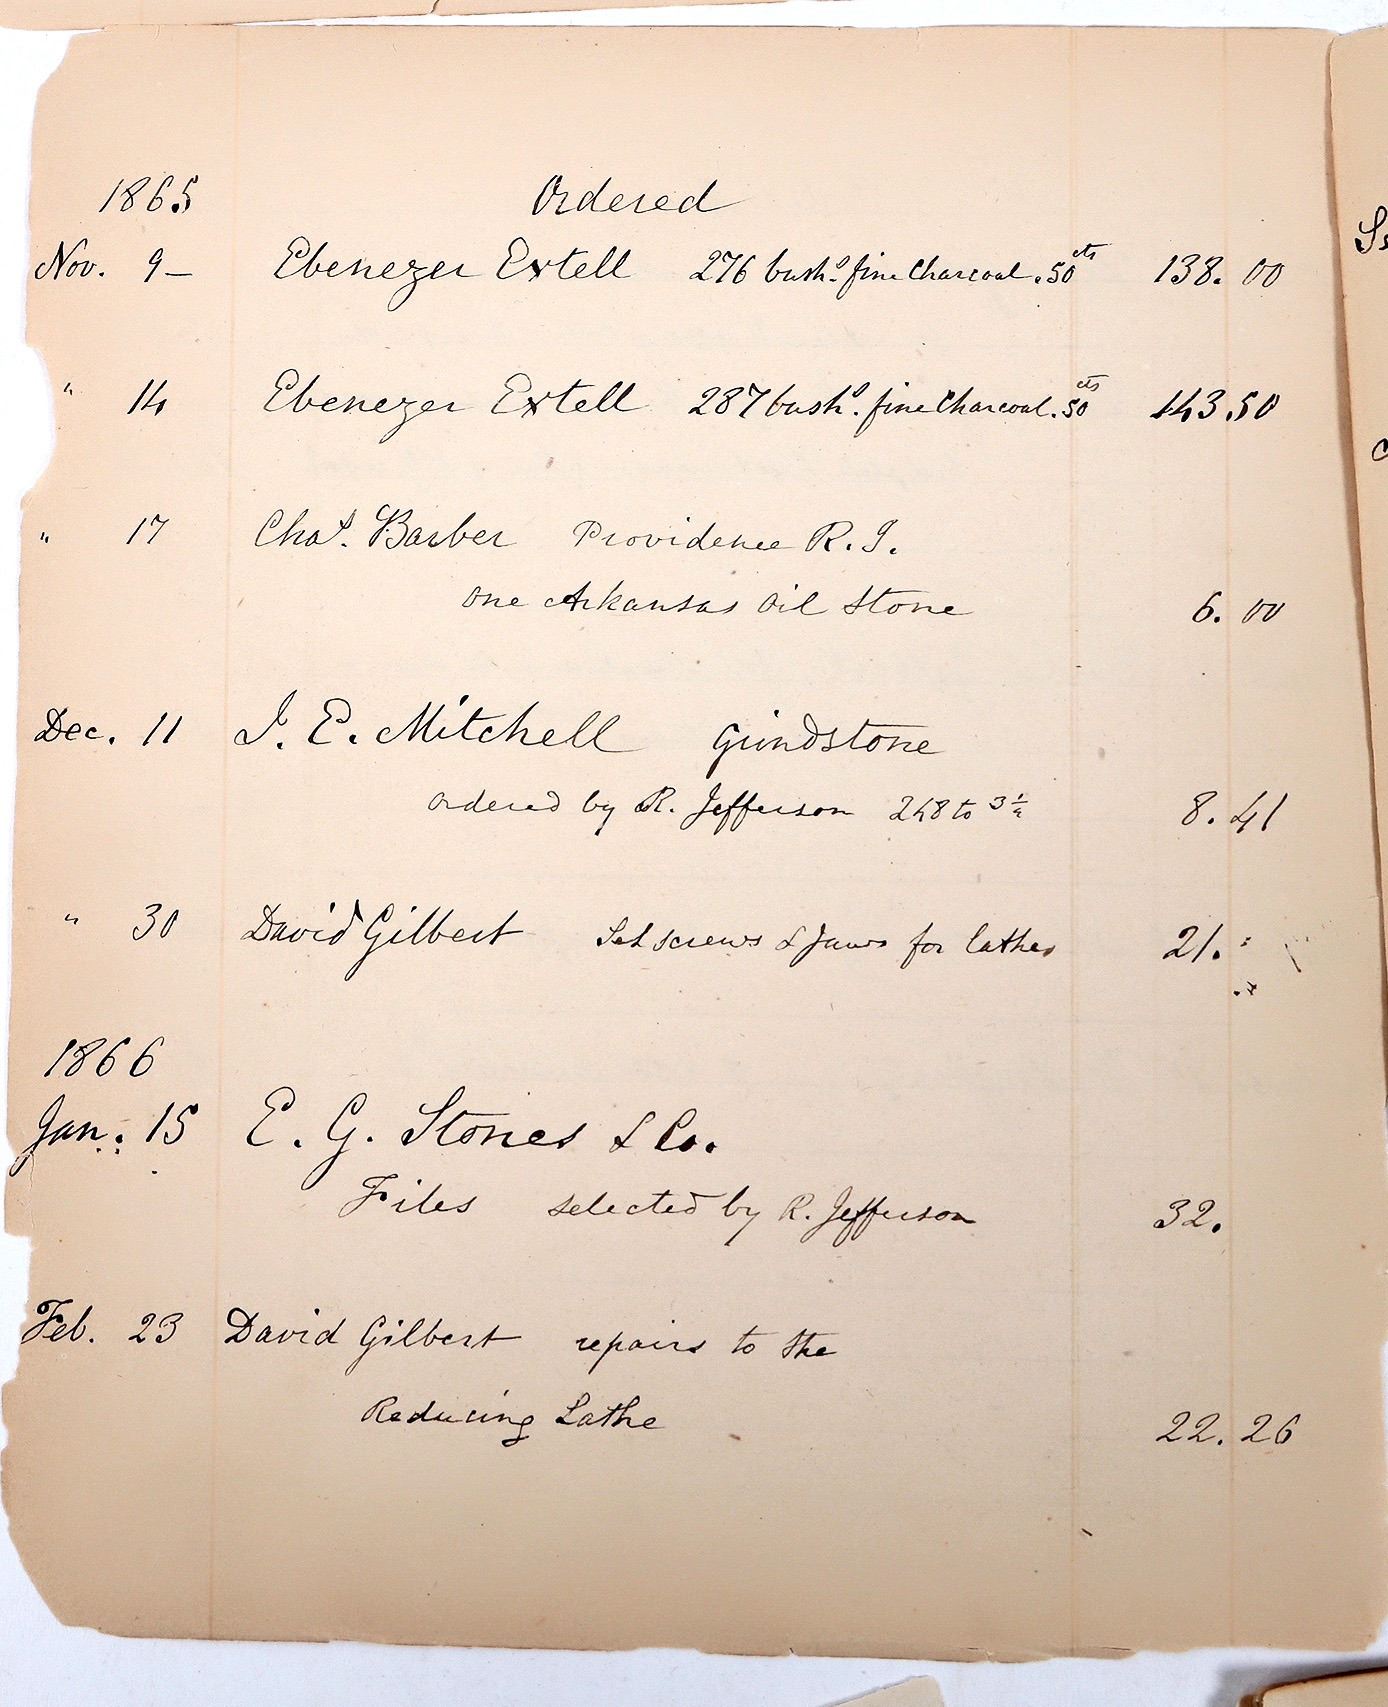 1865 Ordered
Nov. 9 – Ebenezer Extell 276 bushs. fine Charcoal .50 cts 138.00
" 14 Ebenezer Extell 287 bushs. fine Charcoal .50 cts 143.50
" 17 Chas. Barber Providence R.I.
one Arkansas Oil Stone 6.00
Dec. 11 J. E. Mitchell Grindstone
ordered by R. Jefferson 248 to 3½ 8.41
" 30 David Gilbert Set screws & Jaws for lathes 21.
1866
Jan. 15 E. G. Stones & Co.
Files selected by R. Jefferson 32.
Feb. 23 David Gilbert repairs to the
Reducing Lathe 22.26